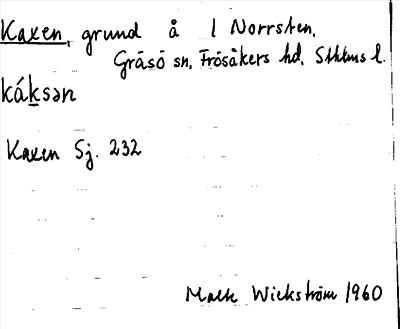 Kaxen, grund å l Norrsten.
Gräsö sn, Frösåkers hd, Sthlms l.
káksən
Kaxen Sj. 232
Wickström 1960